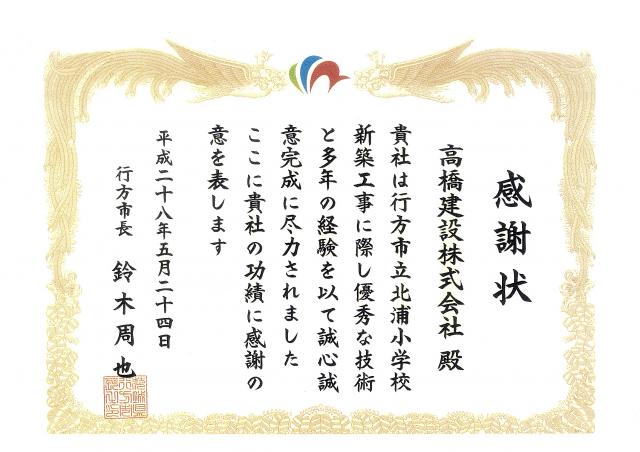 感謝状
高橋建設株式会社 殿
貴社は行方市立北浦小学校
新築工事に際し優秀な技術
と多年の経験を以て誠心誠
意完成に尽力されました
ここに貴社の功績に感謝の
意を表します
平成二十八年五月二十四日
行方市長 鈴木周也